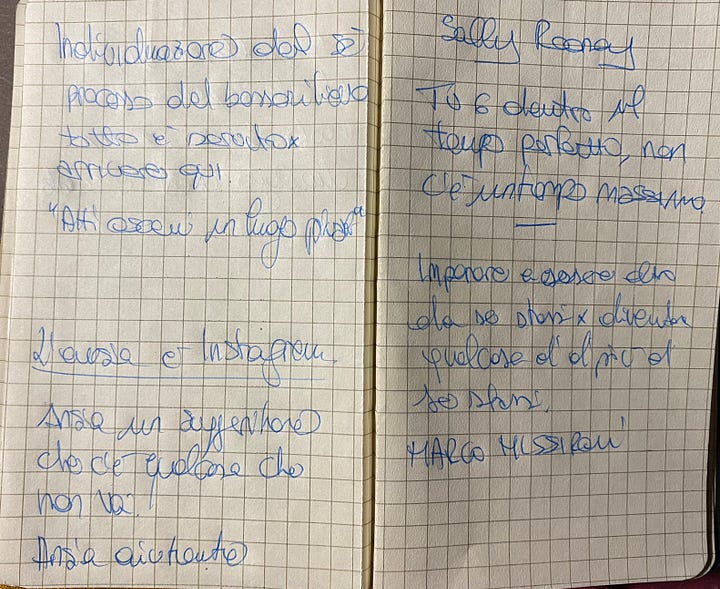 Individuazione del sé
processo del
tutto è paradox
arrivare qui.
"Atti osceni in luogo privato"
L'ansia e Instagram
Ansia un suggeritore
che c'è qualcosa che
non va!
Ansia aiutante
Sally Rooney
Tu 6 dentro il
tempo perfetto, non
c'è un tempo massimo
Imparare a essere altro
da se stessi x diventare
qualcosa di più di
se stessi.
MARCO MISSIROLI